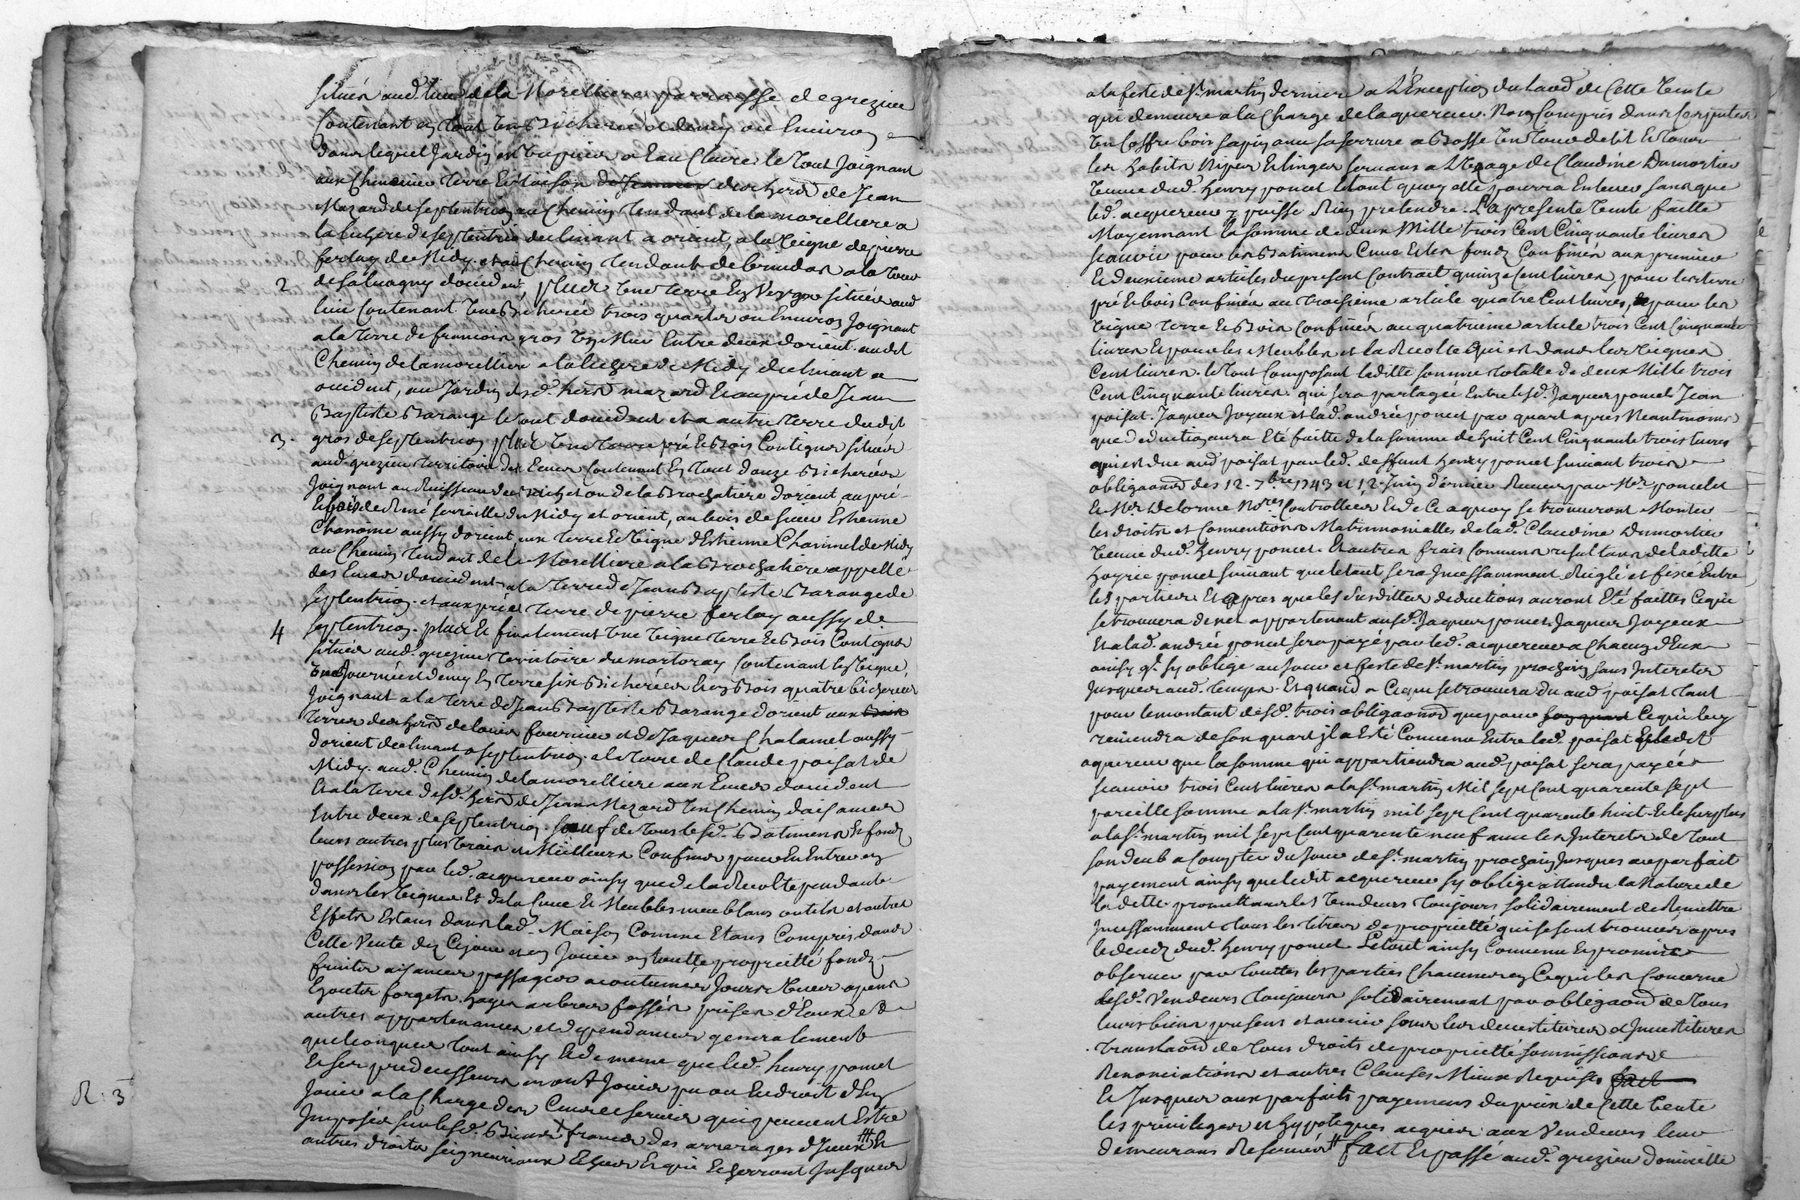 situés aud. lieu de la Morelliere parroisse de grezieu
Contenant en tout Une Bicherée et demy ou Environ
dans lequel Jardin est un puier a Eau Claire le Tout Joignant
aux Chemine Terre et Maison des her.s de Jean
Mazard de septentrion au Chemin Tendant de la morelliere a
la lichere de septentrion declinant a orient, a la Vigne de pierre
ferlay de Midy et au Chemin Tendant de a la Tour
2 de salvagny d'occident, plus Une Terre En Verger située aud.
lieu Contenant Une Bicherée trois quarts ou Environ Joignant
a la Terre de francois gros Un Mur Entre deux d'orient. audit
Chemin de la morelliere a la lichere de Midy declinant a
occident, au Jardin desd. her.s mazard Et au pré de Jean
Baptiste Barange le tout d'occident et a autre Terre dudit
3. gros de septentrion plus Une Terre pré Et Bois Contigus situés
aud. grezieu Territoire des Eenes Contenant En Tout douze Bicherées
Joignant au Ruisseau de ou de la Brochatiere d'orient au pré
Et bois de René de Midy et orient, au bois de sieur Estienne
Chanoine aussy d'orient aux Terre Et Vigne d'Estienne Chamel de Midy
au Chemin Tendant de la Morelliere a la Brochatiere appellé
des Eenes d'occident a la Terre de Jean Baptiste Barange de
septentrion et aux prés et Terre de pierre ferlay aussy de
4 septentrion. plus Et finalement Une Vigne Terre Et Bois Contigus
situés aud. grezieu Territoire du martoray Contenant la Vigne
Une Journée et demy En Terre six Bicherées Et en Bois quatre bicherées
Joignant a la Terre de Jean Baptiste Barange d'orient aux
Terres des her.s de Louis fournier et de Jaques Chalamel aussy
d'orient declinant a septentrion. a la Terre de Claude poisat de
Midy. aud. Chemin de la morelliere aux Eenes d'occident
Et a la Terre desd. her.s de Jean Mazard Un Chemin d'aisances
Entre deux de septentrion. sauf de Tous lesd. Batimens Et fonds
leurs autres plus vrais et Meilleurs Confins pour En Entrer en
possession par led. acquereur ainsy que de la Recolte pendante
dans les Vignes Et de la Cuve Et Meubles meublans outils et autres
Effets Estans dans lad. Maison Comme Etans Compris dans
Cette Vente dez Cejour et en Jouir en toutte proprietté fonds
fruits aisances passages acoutumés Jours Vues apens
Egouts forgets hayes arbres fossés prises d'Eaux et
autres appartenances et dependances generalement
quelconques Tout ainsy Et de meme que led. henry poncet
Et ses predecesseurs en ont Joui pu ou Eu droit d'En
R. 3 Jouir a la Charge des Cens et servis qui peuvent Estre
Imposés sur lesd. Biens francs des arrerages d'Iceux Et
autres droits seigneuriaux Echus Et qui Echerront Jusques
a la feste de St. martin dernier a L'Exception du Laod de Cette Vente
qui demeure a la Charge de l'aquereur. Non Compris dans
Un Coffre bois sapin avec sa serrure a Bosse Un Tour de lit Et tous
les habits Nipes Et linges servans a L'Usage de Claudine Dumortier
Veuve dud. Henry poncet le tout quoy elle pourra Enlever sans que
led. acquereur y puisse Rien pretendre. La presente Vente faitte
Moyennant la somme de deux Mille trois Cent Cinquante livres
sçavoir pour les Batimens Cuve Et les fonds Confinés aux premier
Et deuxieme articles du present Contrat quinze Cent livres, pour les terre
pré Et bois Confinés au troisieme article quatre Cent livres, pour les
Vigne Terre Et Bois Confinés au quatrieme article trois Cent Cinquante
livres Et pour les Meubles et la Recolte qui est dans les Vignes
Cent livres. le tout Composant ladite somme Totalle de deux Mille trois
Cent Cinquante livres. qui sera partagée Entre lesd. Jaques poncet Jean
poisat. Jaques Joyeux et lad. andrée poncet par quart apres Neantmoins
que deduction aura Eté faitte de la somme de huit Cent Cinquante trois livres
qui est due aud. poisat par led. deffunt henry poncet suivant trois
obligaon.s des 12. 7bre 1743 et 12 Juin dernier Receues par Mes. poncelet
Et Mes. delorme No.res Controllées Et de Ce a quoy se trouveront Monter
les droits et Conventions Matrimonialles de lad. Claudine Dumortier
Veuve dud. Henry poncet. Et autres frais Communs resultans de ladite
hoyrie poncet suivant que le tout sera Incessamment Reiglé et fixé Entre
les parties Et apres que les susdittes deductions auront Eté faittes Ce qui
se trouvera de net appartenant ausd. Jaques poncet Jaques Joyeux
Et a lad. andrée poncet sera payé par led. acquereur a Chacun d'Eux
ainsy qu'il s'y oblige au Jour et feste de St. martin prochain sans Interets
Jusques aud. Temps. Et quand a Ce qui se trouvera du aud. poisat Tant
pour le montant desd. trois obligaon.s que pour Ce qui luy
reviendra de son quart il a Eté Convenu Entre led. poisat Et ledit
aquereur que la somme qui appartiendra aud. poisat sera payée
sçavoir trois Cent livres a la St. martin Mil sept Cent quarente sept
pareille somme a la St. martin mil sept Cent quarente huit Et le surplus
a la St. martin mil sept Cent quarente neuf avec les Interets de Tout
son deub a Compter du Jour de St. martin prochain Jusques au parfait
payement ainsy que ledit acquereur s'y oblige attendu la Nature de
la dette promettans les Vendeurs Toujours solidairement de Remettre
Incessamment Tous les titres de proprietté qui se sont trouvés apres
le deceds dud. Henry poncet. Le tout ainsy Convenu Et promis
observer par Touttes les parties Chacune en Ce qui les Concerne
lesd. Vendeurs Toujours solidairement par obligaon de Tous
leurs biens presens et avenir sous les devestitures et Investitures
Translaon de Tous droits de proprietté soumissions
Renonciations et autres Clauses Mieux Requises
Et Jusques aux parfaits payemens du prix de Cette Vente
les privileges et hypoteques acquis aux Vendeurs leur
demeurans Reservés # fait Et passé aud. grezieu domicille